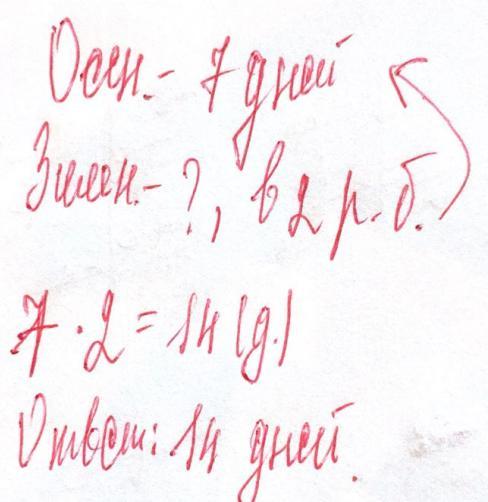 Осен. - 7 дней
Зимен. - ?, в 2 р. б.
7 · 2 = 14 (д.)
Ответ: 14 дней.